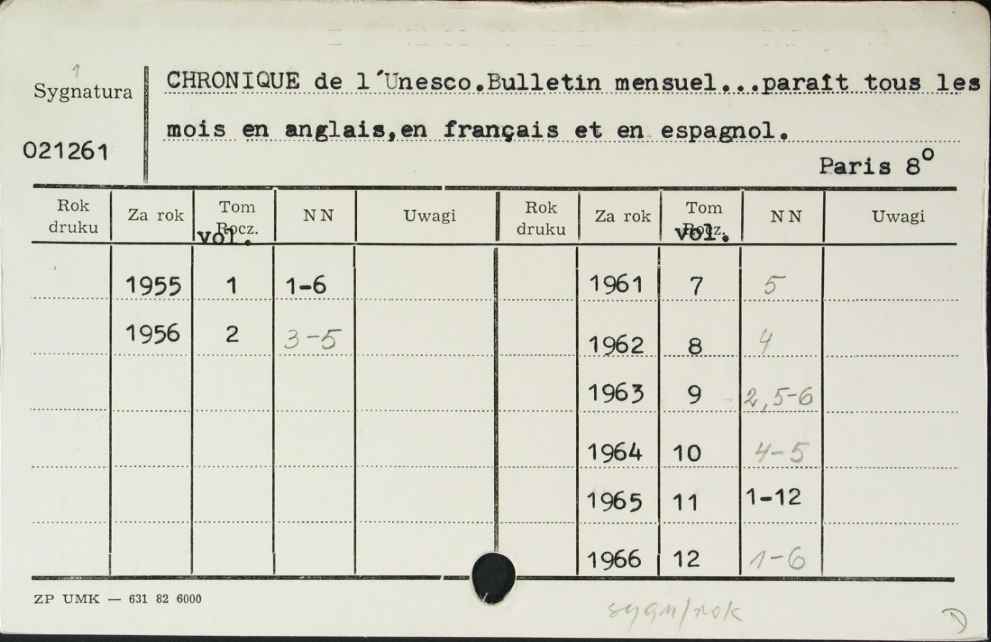 1
Sygnatura
CHRONIQUE de l'Unesco.Bulletin mensuel...paraît tous les
mois en anglais,en français et en espagnol.
021261
Paris 8°
Rok druku Za rok Tom Rocz. vol. NN Uwagi Rok druku Za rok Tom Rocz. vol. NN Uwagi
1955 1 1-6 1961 7 5
1956 2 3-5 1962 8 4
1963 9 2,5-6
1964 10 4-5
1965 11 1-12
1966 12 1-6
ZP UMK — 631 82 6000
sygn/rok